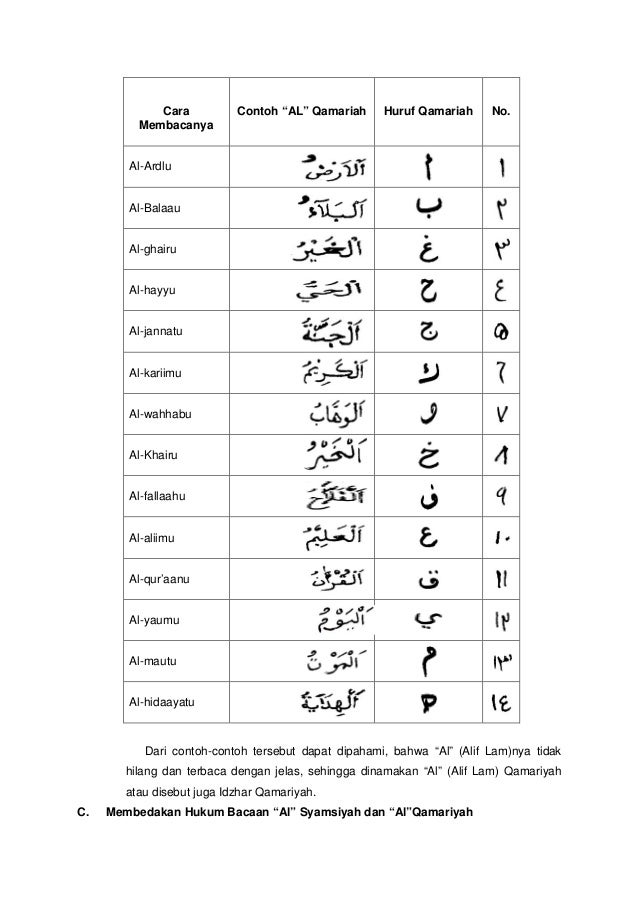 Cara Membacanya Contoh “AL” Qamariah Huruf Qamariah No.
Al-Ardlu اَلْاَرْضُ ا ١
Al-Balaau اَلْبَلَآءُ ب ٢
Al-ghairu اَلْغَيْرُ غ ٣
Al-hayyu اَلْحَيُّ ح ٤
Al-jannatu اَلْجَنَّةُ ج ٥
Al-kariimu اَلْكَرِيْمُ ك ٦
Al-wahhabu اَلْوَهَّابُ و ٧
Al-Khairu اَلْخَيْرُ خ ٨
Al-fallaahu اَلْفَلَّاحُ ف ٩
Al-aliimu اَلْعَلِيْمُ ع ١٠
Al-qur’aanu اَلْقُرْاٰنُ ق ١١
Al-yaumu اَلْيَوْمُ ي ١٢
Al-mautu اَلْمَوْتُ م ١٣
Al-hidaayatu اَلْهِدَايَةُ ه ١٤
Dari contoh-contoh tersebut dapat dipahami, bahwa “Al” (Alif Lam)nya tidak
hilang dan terbaca dengan jelas, sehingga dinamakan “Al” (Alif Lam) Qamariyah
atau disebut juga Idzhar Qamariyah.
C. Membedakan Hukum Bacaan “Al” Syamsiyah dan “Al”Qamariyah